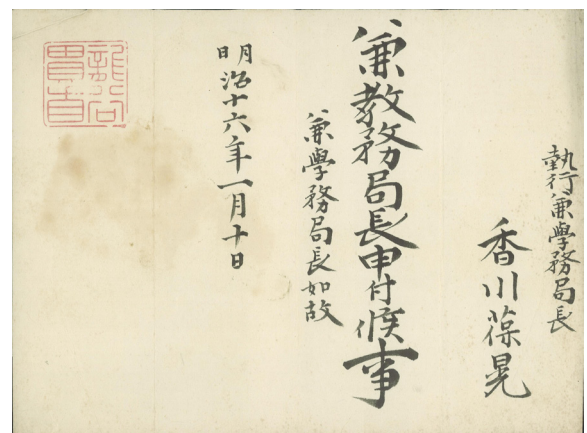 執行兼學務局長
香川葆晃
兼教務局長申付候事
兼學務局長如故
明治十六年一月十日
龍谷貫首